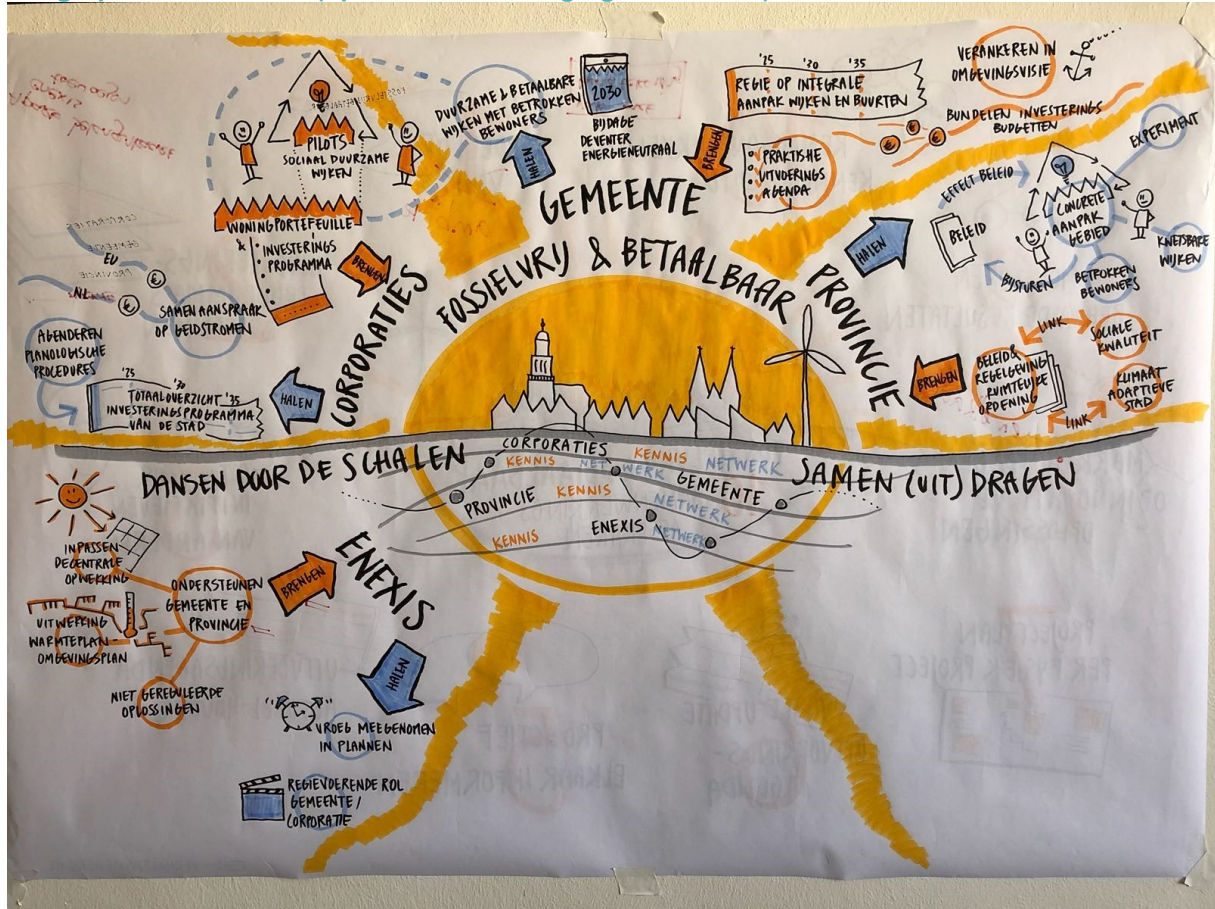 PILOTS
SOCIAAL DUURZAME
WIJKEN
WONINGPORTEFEUILLE
&
INVESTERINGS
PROGRAMMA
BRENGEN
EU
NL
SAMEN AANSPRAAK
OP GELDSTROMEN
AGENDEREN
PLANOLOGISCHE
PROCEDURES
'25 '30 '35
TOTAALOVERZICHT
INVESTERINGSPROGRAMMA
VAN DE STAD
HALEN
CORPORATIES
DUURZAME & BETAALBARE
WIJKEN MET BETROKKEN
BEWONERS
HALEN
2030
BIJDAGE
DEVENTER
ENERGIENEUTRAAL
BRENGEN
'25 '30 '35
REGIE OP INTEGRALE
AANPAK WIJKEN EN BUURTEN
PRAKTISHE
UITVOERINGS
AGENDA
VERANKEREN IN
OMGEVINGSVISIE
BUNDELEN INVESTERINGS
BUDGETTEN
GEMEENTE
FOSSIELVRIJ & BETAALBAAR
PROVINCIE
HALEN
EFFEKT BELEID
BELEID
BIJSTUREN
CONCRETE
AANPAK
GEBIED
EXPERIMENT
KWETSBARE
WIJKEN
BETROKKEN
BEWONERS
BRENGEN
BELEID &
REGELGEVING
RUIMTELIJKE
ORDENING
LINK
SOCIALE
KWALITEIT
LINK
KLIMAAT
ADAPTIEVE
STAD
DANSEN DOOR DE SCHALEN
SAMEN (UIT) DRAGEN
CORPORATIES
KENNIS NETWERK KENNIS NETWERK
PROVINCIE KENNIS GEMEENTE
NETWERK
KENNIS ENEXIS NETWERK
ENEXIS
BRENGEN
ONDERSTEUNEN
GEMEENTE EN
PROVINCIE
INPASSEN
DECENTRALE
OPWEKKING
UITWERKING
WARMTEPLAN-
OMGEVINGSPLAN
NIET GEREGULEERDE
OPLOSSINGEN
HALEN
VROEG MEEGENOMEN
IN PLANNEN
REGIEVOERENDE ROL
GEMEENTE /
CORPORATIE